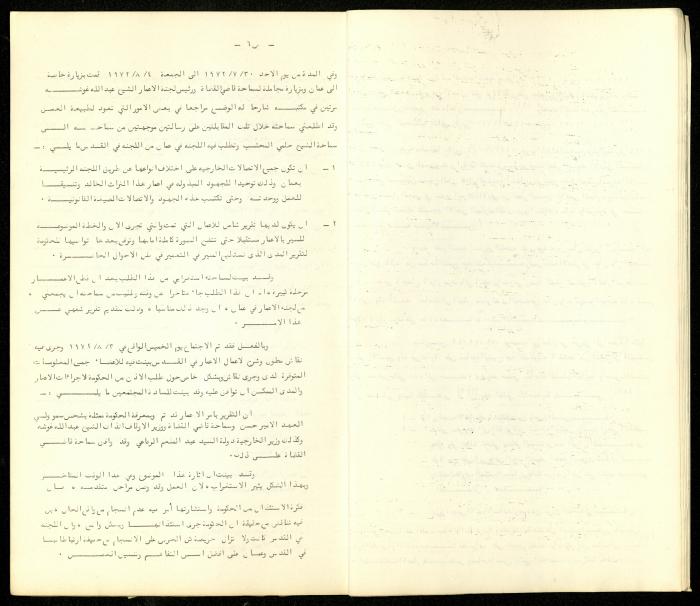 ـ ٦ ـ
وفي المدة من يوم الاحد ١٩٧٢/٧/٣٠ الى الجمعة ١٩٧٢/٨/٤ قمت بزيارة خاصة
الى عمان وبزيارة مجاملة لسماحة قاضي القضاة ورئيس لجنة الاعمار الشيخ عبد الله غوشه
مرتين في مكتبه شارحا له الوضع مراجعا في بعض الامور التي تعود لطبيعة العمل
وقد اطلعني سماحته خلال تلك المقابلتين على رسالتين موجهتين من سماحته الى
سماحة الشيخ حلمي المحتسب وتطلب فيه اللجنة في عمان من اللجنة في القدس ما يلي : ـ
١ ـ ان تكون جميع الاتصالات الخارجيه على اختلاف انواعها عن طريق اللجنة الرئيسية
بعمان وذلك توحيدا للجهود المبذوله في اعمار هذا التراث الخالد وتنسيقا
للعمل ووحدته وحتى تكتسب هذه الجهود والاتصالات الصبغة القانونية .
٢ ـ ان يكون لديها تقرير شامل للاعمال التي تمت والتي تجرى الان والخطة الموضوعه
للسير بالاعمار مستقبلا حتى تتضح الصورة كاملة امامها وترفع بعدها تواصيها للحكومة
لتقرير المدى الذى السير في التعمير في ظل الاحوال الحاضرة .
وقد بينت لسماحته استغرابي من هذا الطلب بعد ان قطع الاعمار
مرحلة كبيرة وان هذا الطلب جاء متأخرا عن وقته سماحته ان يجمعني
مع لجنة الاعمار في عمان ان وجد ذلك مناسبا وذلك بتقديم تقرير شفهي عن
هذا الامر .
وبالفعل فقد تم الاجتماع يوم الخميس الواقع في ١٩٧٢/٨/٣ وجرى فيه
نقاش مطول وشرح لاعمال الاعمار في القدس بينت فيه للاعضاء جميع المعلومات
المتوفرة لدى وجرى نقاش وبشكل خاص حول طلب الاذن من الحكومة لاجراءات الاعمار
والمدى الممكن ان توافق عليه وقد بينت للسادة المجتمعين ما يلي : ـ
ان التقرير بامر الاعمار قد تم وبمعرفة الحكومة ممثلة بشخص سمو ولي
العهد الامير حسن وسماحة قاضي القضاة ووزير الاوقاف انذاك الشيخ عبد الله غوشه
وكذلك وزير الخارجية دولة السيد عبد المنعم الرفاعي وقد وافق سماحة قاضي
القضاة على ذلك.
وقد بينت ان اثارة هذا الموضوع وفي هذا الوقت المتأخر
وبهذا الشكل يثير الاستغراب لان العمل وقد وصل مراحل متقدمه
فكرة الاستئذان من الحكومة واستشارتها أمر فيه عدم انسجام مع واقع الحال
فيه تناقض مع حقيقة ان الحكومة جرى استئذانها وبشكل واضح وان اللجنة
في القدس كانت ولا تزال حريصة كل الحرص على الانسجام مع
في القدس وعمان على افضل اسس التفاهم وتنسيق العمل .